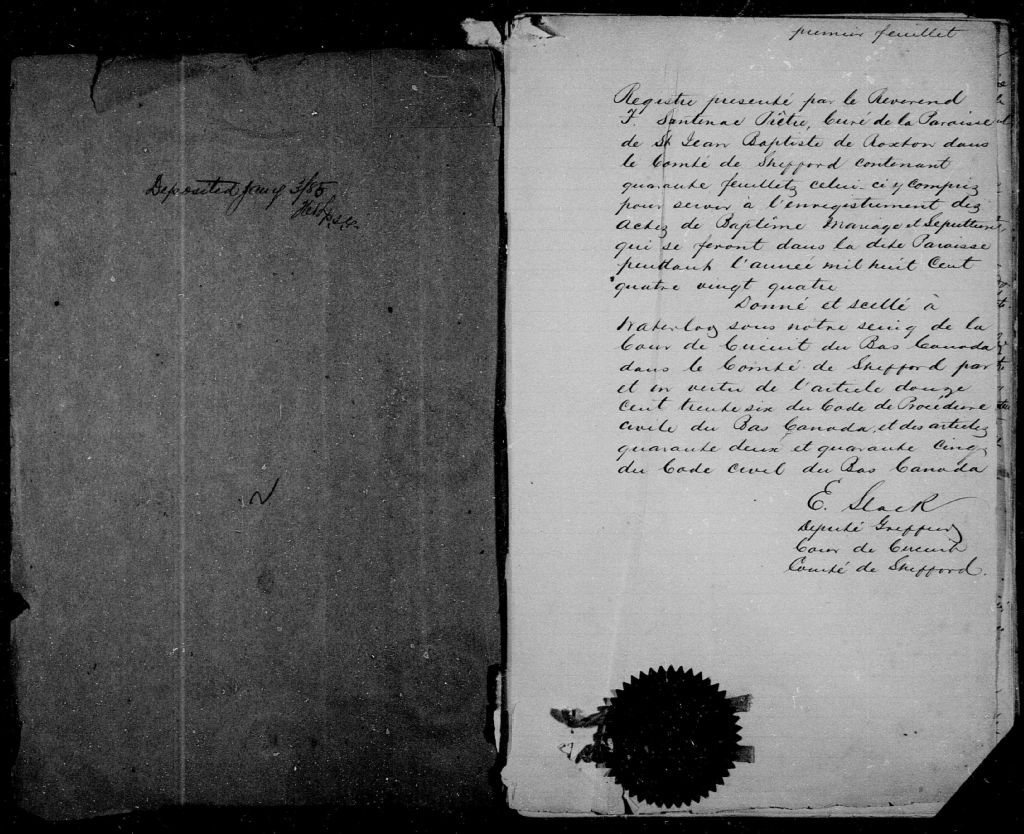 Deposited Jany 3/85
premier feuillet
Registre presenté par le Reverend
F. Sentenac Prêtre, Curé de la Paroisse
de St Jean Baptiste de Roxton dans
le Comté de Shefford contenant
quarante feuillets celui-ci y compris
pour servir à l'enregistrement des
Actes de Baptême Mariage et Sepulture
qui se feront dans la dite Paroisse
pendant l'année mil huit cent
quatre vingt quatre
Donné et scellé à
Waterloo sous notre seing de la
Cour de Circuit du Bas Canada
dans le Comté de Shefford par
et en vertu de l'article douze
cent trente six du Code de Procédure
civile du Bas Canada, et des articles
quarante deux et quarante cinq
du Code civil du Bas Canada
E. Slack
Deputé Greffier
Cour de Circuit
Comté de Shefford.